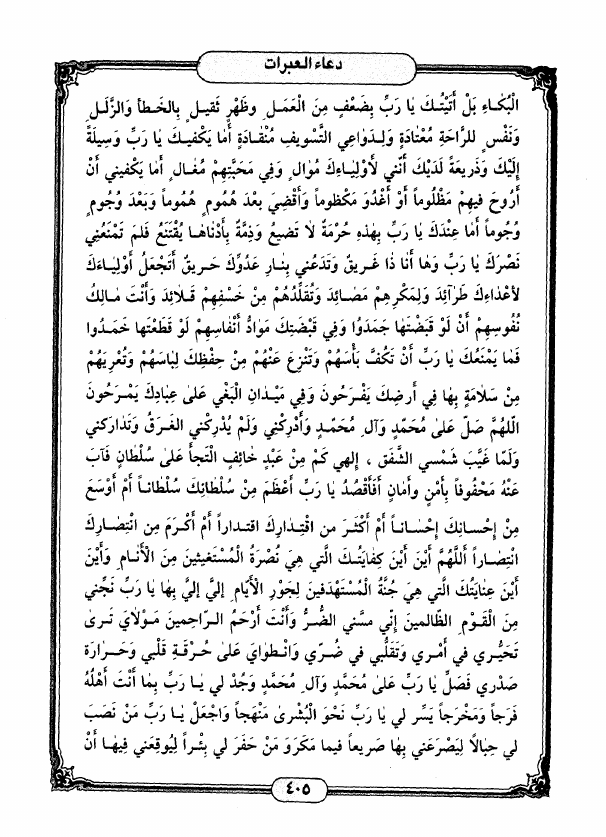 دعاء العبرات
الْبُكَاءِ بَلْ أَتَيْتُكَ يَا رَبِّ بِضَعْفٍ مِنَ الْعَمَلِ وَظَهْرٍ ثَقِيلٍ بِالْخَطَأِ وَالزَّلَلِ
وَنَفْسٍ لِلرَّاحَةِ مُعْتَادَةٍ وَلِدَوَاعِي التَّسْوِيفِ مُنْقَادَةٍ أَمَا يَكْفِيكَ يَا رَبِّ وَسِيلَةً
إِلَيْكَ وَذَرِيعَةً لَدَيْكَ أَنَّنِي لِأَوْلِيَاءِكَ مُوَالٍ وَفِي مَحَبَّتِهِمْ مُغَالٍ أَمَا يَكْفِينِي أَنْ
أَرُوحَ فِيهِمْ مَظْلُوماً أَوْ أَغْدُوَ مَكْظُوماً وَأَقْضِيَ بَعْدَ هُمُومٍ هُمُوماً وَبَعْدَ وُجُومٍ
وُجُوماً أَمَا عِنْدَكَ يَا رَبِّ بِهَذِهِ حُرْمَةٌ لَا تَضِيعُ وَذِمَّةٌ بِأَدْنَاهَا يُقْتَنَعُ فَلَمَ تَمْنَعُنِي
نَصْرَكَ يَا رَبِّ وَهَا أَنَا ذَا غَرِيقٌ وَتَدَعُنِي بِنَارِ عَدُوِّكَ حَرِيقٌ أَتَجْعَلُ أَوْلِيَاءَكَ
لِأَعْدَاءِكَ طَرَآئِدَ وَلِمَكْرِهِمْ مَصَائِدَ وَتُقَلِّدُهُمْ مِنْ خَسْفِهِمْ قَلَائِدَ وَأَنْتَ مَالِكُ
نُفُوسِهِمْ أَنْ لَوْ قَبَضْتَهَا جَمَدُوا وَفِي قَبْضَتِكَ مَوَادُّ أَنْفَاسِهِمْ لَوْ قَطَعْتَهَا خَمَدُوا
فَمَا يَمْنَعُكَ يَا رَبِّ أَنْ تَكُفَّ بَأْسَهُمْ وَتَنْزِعَ عَنْهُمْ مِنْ حِفْظِكَ لِبَاسَهُمْ وَتُعْرِيَهُمْ
مِنْ سَلَامَةٍ بِهَا فِي أَرْضِكَ يَفْرَحُونَ وَفِي مَيْدَانِ الْبَغْيِ عَلَى عِبَادِكَ يَمْرَحُونَ
اَللَّهُمَّ صَلِّ عَلَى مُحَمَّدٍ وَآلِ مُحَمَّدٍ وَأَدْرِكْنِي وَلَمْ يُدْرِكْنِي الْغَرَقُ وَتَدَارَكْنِي
وَلَمَّا غَيَّبَ شَمْسِي الشَّفَقَ ، إِلَهِي كَمْ مِنْ عَبْدٍ خَائِفٍ الْتَجَأَ عَلَى سُلْطَانٍ فَآبَ
عَنْهُ مَحْفُوفاً بِأَمْنٍ وَأَمَانٍ أَفَأَقْصُدُ يَا رَبِّ أَعْظَمَ مِنْ سُلْطَانِكَ سُلْطَاناً أَمْ أَوْسَعَ
مِنْ إِحْسَانِكَ إِحْسَاناً أَمْ أَكْثَرَ من اقْتِدَارِكَ اقْتِدَاراً أَمْ أَكْرَمَ مِن انْتِصَارِكَ
انْتِصَاراً أَللَّهُمَّ أَيْنَ أَيْنَ كِفَايَتُكَ الَّتِي هِيَ نُصْرَةُ الْمُسْتَغِيثِينَ مِنَ الْأَنَامِ وَأَيْنَ
أَيْنَ عِنَايَتُكَ الَّتِي هِيَ جُنَّةُ الْمُسْتَهْدَفِينَ لِجَوْرِ الْأَيَّامِ إِلَيَّ إِلَيَّ بِهَا يَا رَبِّ نَجِّنِي
مِنَ الْقَوْمِ الظَّالِمِينَ إِنِّي مَسَّنِي الضُّرُّ وَأَنْتَ أَرْحَمُ الرَّاحِمِينَ مَوْلَايَ تَرَى
تَحَيُّرِي فِي أَمْرِي وَتَقَلُّبِي فِي ضُرِّي وَانْطِوَايَ عَلَى حُرْقَةِ قَلْبِي وَحَرَارَةِ
صَدْرِي فَصَلِّ يَا رَبِّ عَلَى مُحَمَّدٍ وَآلِ مُحَمَّدٍ وَجُدْ لِي يَا رَبِّ بِمَا أَنْتَ أَهْلُهُ
فَرَجاً وَمَخْرَجاً يَسِّرْ لِي يَا رَبِّ نَحْوَ الْبُشْرَى مَنْهَجاً وَاجْعَلْ يَا رَبِّ مَنْ نَصَبَ
لِي حِبَالًا لِيَصْرَعَنِي بِهَا صَرِيعاً فِيمَا مَكَرَوَ مَنْ حَفَرَ لِي بِئْراً لِيُوقِعَنِي فِيهَا أَنْ
٤٠٥